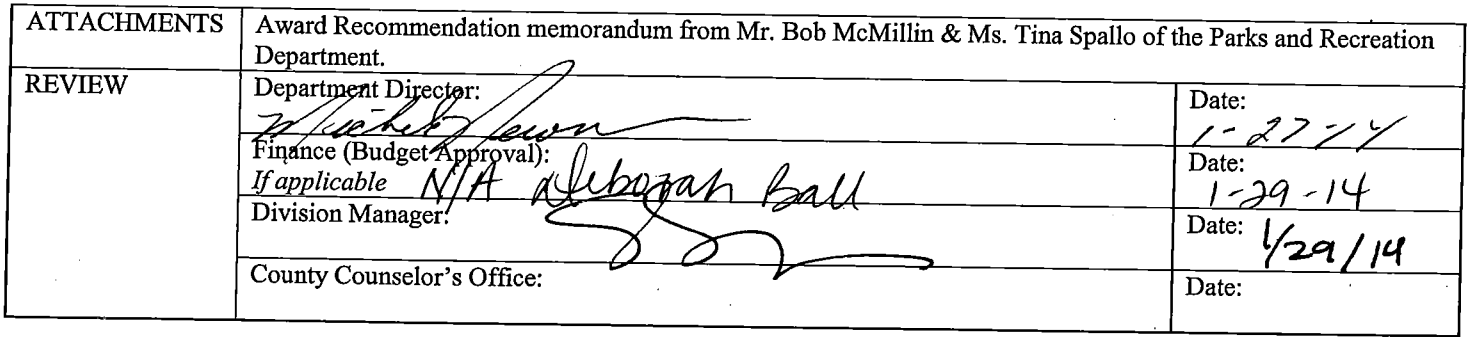 ATTACHMENTS
Award Recommendation memorandum from Mr. Bob McMillin & Ms. Tina Spallo of the Parks and Recreation
Department.
REVIEW
Department Director:
Date:
1-27-14
Finance (Budget Approval):
If applicable N/A Deborah Ball
Date:
1-29-14
Division Manager:
Date: 1/29/14
County Counselor's Office:
Date: